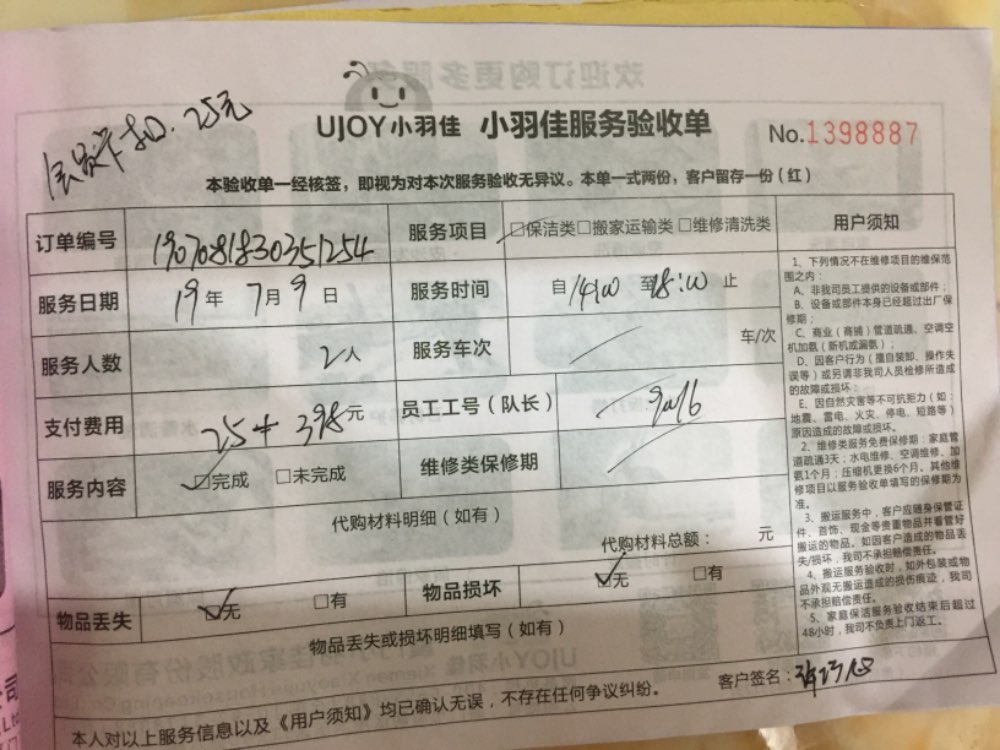 会员卡扣.25元
UJOY小羽佳 小羽佳服务验收单
No.1398887
本验收单一经核签，即视为对本次服务验收无异议。本单一式两份，客户留存一份（红）
订单编号 1907081830351254 服务项目 □保洁类□搬家运输类 □维修清洗类
服务日期 19年 7月 9日 服务时间 自14:00 至18:00 止
服务人数 2人 服务车次 车/次
支付费用 25+398元 员工工号（队长） 9016
服务内容 ☑完成 □未完成 维修类保修期
代购材料明细（如有）
代购材料总额： 元
物品丢失 ☑无 □有 物品损坏 ☑无 □有
物品丢失或损坏明细填写（如有）
客户签名：
本人对以上服务信息以及《用户须知》均已确认无误，不存在任何争议纠纷。
用户须知
1、下列情况不在维修项目的维保范
围之内：
A、非我司员工提供的设备或部件；
B、设备或部件本身已经超过出厂保
修期；
C、商业（商铺）管道疏通、空调空
机加氨（新机或漏氨）；
D、因客户行为（擅自装卸、操作失
误等）或另请非我司人员检修所造成
的故障或损坏
E、因自然灾害等不可抗拒力（如：
地震、雷电、火灾、停电、短路等）
原因造成的故障或损坏。
2、维修类服务免费保修期：家庭管
道疏通3天；水电维修、空调维修、加
氨1个月；压缩机更换6个月。其他维
修项目以服务验收单填写的保修期为
准。
3、搬运服务中，客户应随身保管证
件、首饰、现金等贵重物品并看管好
搬运的物品。如因客户造成的物品丢
失/损坏，我司不承担赔偿责任。
4、搬运服务验收时，如外包装或物
品外观无搬运造成的损伤痕迹，我司
不承担赔偿责任。
5、家庭保洁服务验收结束后超过
48小时，我司不负责上门返工。